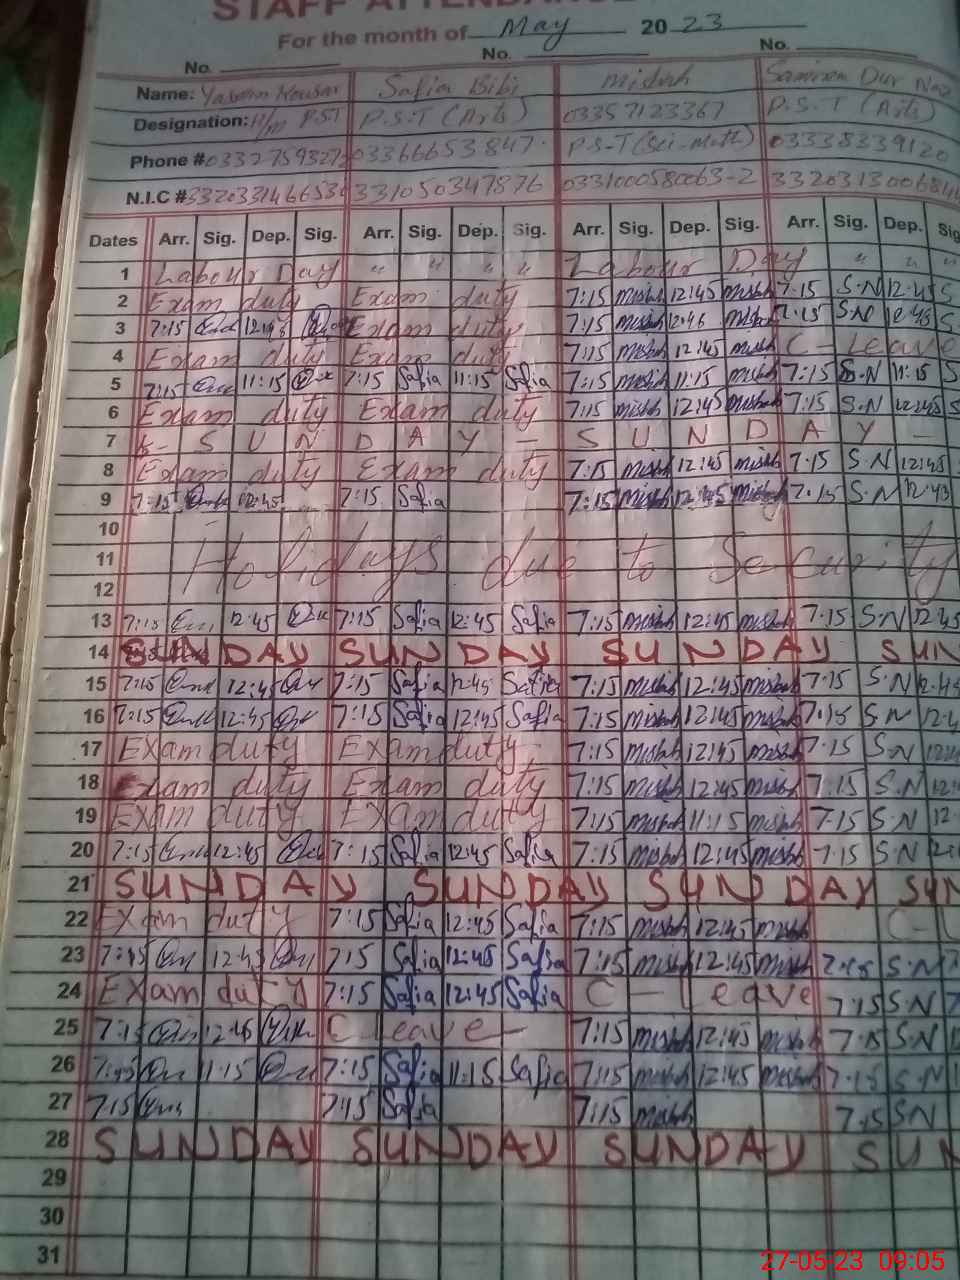 STAFF ATTENDANCE
For the month of May 2023
No. No. No.
Name: Safia Bibi misbah
Designation: H/M P.S.T P.S.T (Arts) 03357123367 P.S.T (Arts)
Phone # 03366653847 P.S-T (Sci-math) 03338339120
N.I.C # 331050347876
Dates Arr. Sig. Dep. Sig. Arr. Sig. Dep. Sig. Arr. Sig. Dep. Sig. Arr. Sig. Dep. Sig
1 Labour Day " " " " Labour Day " " "
2 Exam duty Exam duty 7:15 misbah 12:45 misbah 7:15 S.N 12:45 S
3 7:15 12:45 Exam duty 7:15 misbah 12:45 misbah 7:15 S.N 12:45 S
4 Exam duty Exam duty 7:15 misbah 12:45 misbah C - Leave
5 7:15 11:15 7:15 Safia 11:15 Safia 7:15 misbah 11:15 misbah 7:15 S.N 11:15 S
6 Exam duty Exam duty 7:15 misbah 12:45 misbah 7:15 S.N 12:45 S
7 - S U N D A Y - S U N D A Y -
8 Exam duty Exam duty 7:15 misbah 12:45 misbah 7:15 S.N 12:45
9 7:15 12:45 7:15 Safia 7:15 misbah 12:45 misbah 7:15 S.N 12:45
10
11 Holidays due to Security
12
13 7:15 12:45 7:15 Safia 12:45 Safia 7:15 misbah 12:45 misbah 7:15 S.N 12:45
14 SUNDAY SUNDAY SUNDAY SUN
15 7:15 12:45 7:15 Safia 12:45 Safia 7:15 misbah 12:45 misbah 7:15 S.N 12:45
16 7:15 12:45 7:15 Safia 12:45 Safia 7:15 misbah 12:45 misbah 7:15 S.N 12:4
17 Exam duty Exam duty 7:15 misbah 12:45 misbah 7:15 S.N 12:
18 Exam duty Exam duty 7:15 misbah 12:45 misbah 7:15 S.N 12:
19 Exam duty Exam duty 7:15 misbah 11:15 misbah 7:15 S.N 12
20 7:15 12:45 7:15 Safia 12:45 Safia 7:15 misbah 12:45 misbah 7:15 S.N
21 SUNDAY SUNDAY SUNDAY SUN
22 Exam duty 7:15 Safia 12:45 Safia 7:15 misbah 12:45 misbah C - L
23 7:15 12:45 7:15 Safia 12:45 Safia 7:15 misbah 12:45 misbah 7:15 S.N
24 Exam duty 7:15 Safia 12:45 Safia C - Leave 7:15 S.N
25 7:15 12:45 C Leave - 7:15 misbah 12:45 misbah 7:15 S.N
26 7:15 11:15 7:15 Safia 11:15 Safia 7:15 misbah 12:45 misbah 7:15 S.N
27 7:15 7:15 Safia 7:15 misbah 7:15 S.N
28 SUNDAY SUNDAY SUNDAY SUN
29
30
31
27-05-23 09:05